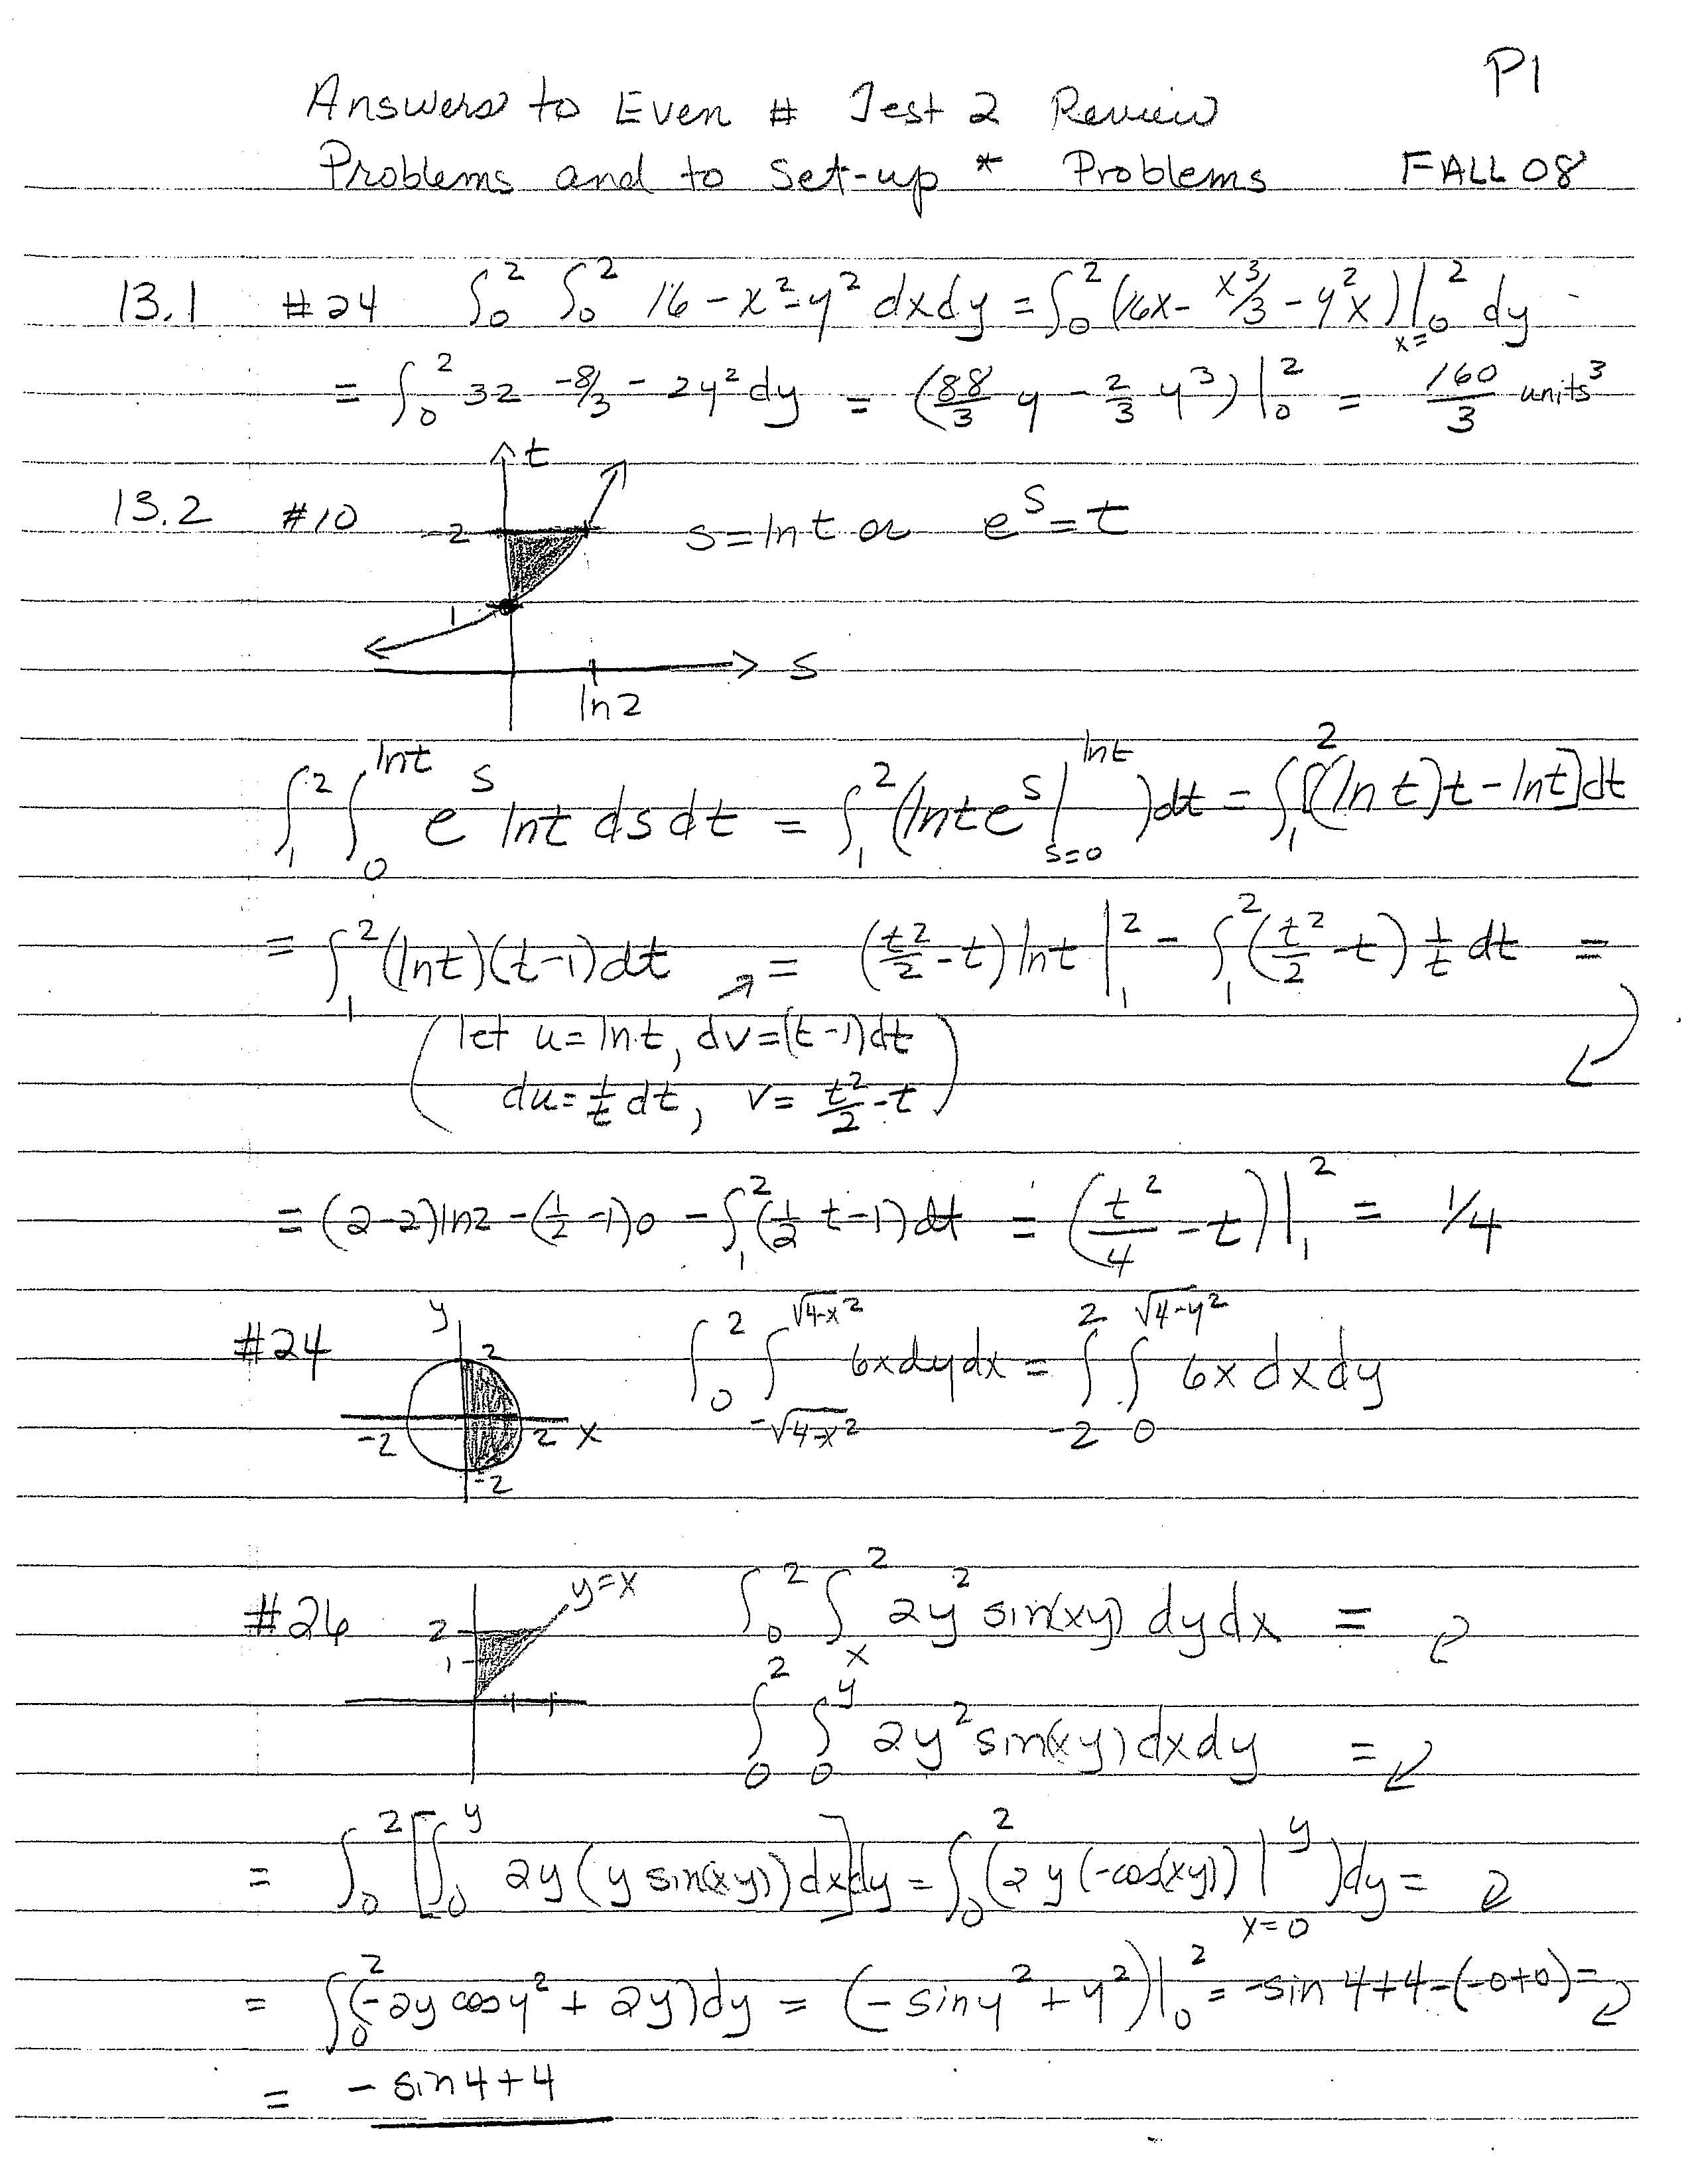 P1
Answers to Even # Test 2 Review
Problems and to Set-up * Problems FALL 08
13.1 #24 ∫₀² ∫₀² 16 - x² - y² dxdy = ∫₀² (16x - x³/3 - y²x)|ₓ₌₀² dy
= ∫₀² 32 - 8/3 - 2y² dy = (88/3 y - 2/3 y³)|₀² = 160/3 units³
t
13.2 #10 2 s = ln t or e^s = t
1
s
ln 2
∫₁² ∫₀^(ln t) e^s ln t ds dt = ∫₁² (ln t e^s |ₛ₌₀^(ln t)) dt = ∫₁² [(ln t)t - ln t] dt
= ∫₁² (ln t)(t-1) dt = (t²/2 - t) ln t |₁² - ∫₁² (t²/2 - t) 1/t dt =
(let u = ln t, dv = (t-1)dt
du = 1/t dt, v = t²/2 - t)
= (2-2)ln2 - (1/2 - 1)0 - ∫₁² (1/2 t - 1) dt = (t²/4 - t)|₁² = 1/4
#24 y 2 -2 2 x -2 ∫₀² ∫_(-√(4-x²))^(√(4-x²)) 6x dy dx = ∫₋₂² ∫₀^(√(4-y²)) 6x dx dy
#26 2 1 y=x ∫₀² ∫ₓ² 2y² sin(xy) dy dx =
∫₀² ∫₀^y 2y² sin(xy) dx dy =
= ∫₀² [∫₀^y 2y (y sin(xy)) dx] dy = ∫₀² (2y (-cos(xy)) |ₓ₌₀^y) dy =
= ∫₀² (-2y cos y² + 2y) dy = (-sin y² + y²)|₀² = -sin 4 + 4 - (-0+0) =
= -sin 4 + 4